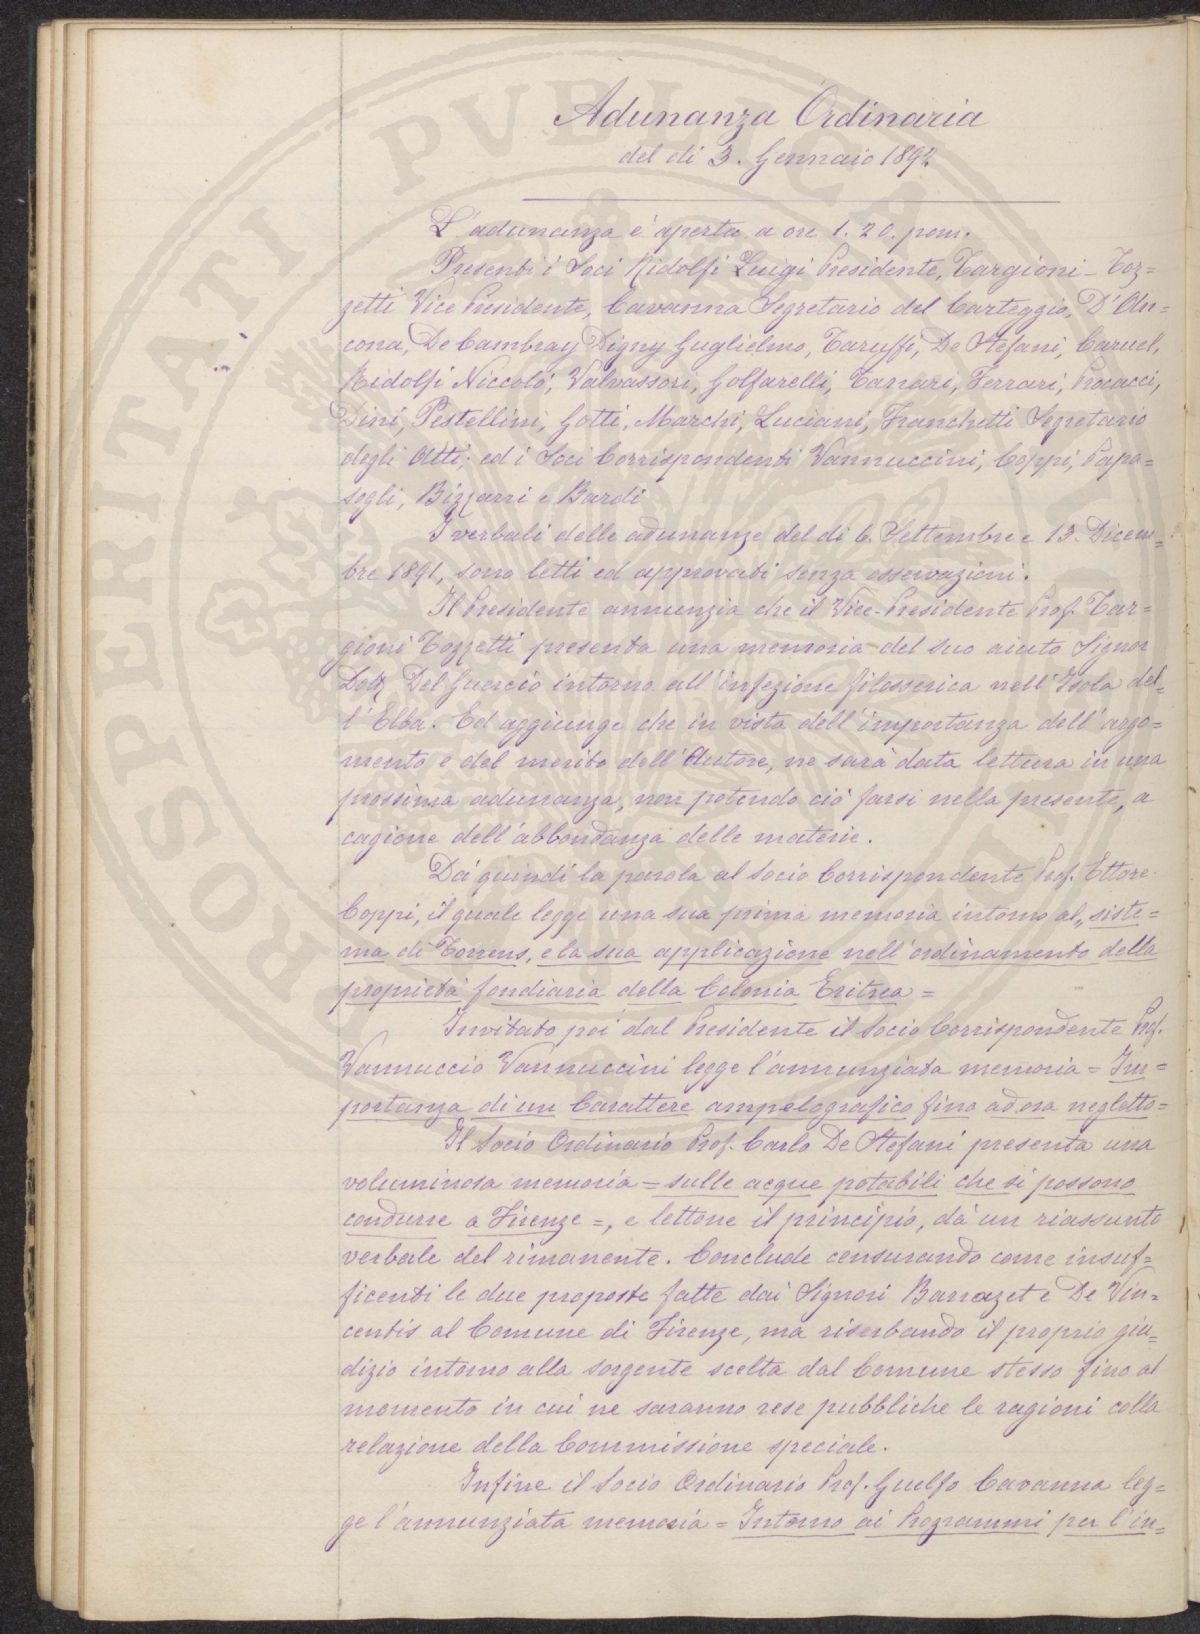 Adunanza Ordinaria
del di 3. Gennaio 1892
L'adunanza é aperta a ore 1.20. pom.
Presenti i Soci Ridolfi Luigi Presidente, Targioni-Toz=
zetti Vice Presidente, Cavanna Segretario del Carteggio, D'An=
cona, De Cambray Digny Guglielmo, Taruffi, De Stefani, Caruel,
Ridolfi Niccolò, Valvassori, Golfarelli, Tanari, Ferrari, Procacci,
Dini, Pestellini, Gotti, Marchi, Luciani, Franchetti Segretario
degli Atti; ed i Soci Corrispondenti Vannuccini, Coppi, Papa=
sogli, Bizzarri e Bardi
I verbali delle adunanze del di 6. Settembre e 13. Dicem=
bre 1891, sono letti ed approvati senza osservazioni.
Il Presidente annunzia che il Vice-Presidente Prof. Tar=
gioni Tozzetti presenta una memoria del suo aiuto Signor
Dott. Del Guercio intorno all'infezione filosserica nell'Isola del=
l'Elba. Ed aggiunge che in vista dell'importanza dell'argo=
mento e del merito dell'Autore, ne sarà data lettura in una
prossima adunanza, non potendo ciò farsi nella presente, a
cagione dell'abbondanza delle materie.
Dà quindi la parola al Socio Corrispondente Prof. Ettore
Coppi, il quale legge una sua prima memoria intorno al „siste=
ma di Torrens, e la sua applicazione nell'ordinamento della
proprietà fondiaria della Colonia Eritrea =
Invitato poi dal Presidente il Socio Corrispondente Prof.
Vannuccio Vannuccini legge l'annunziata memoria = Im=
portanza di un Carattere ampelografico fino ad ora negletto=
Il Socio Ordinario Prof. Carlo De Stefani presenta una
voluminosa memoria = sulle acque potabili che si possono
condurre a Firenze =, e lettone il principio, dà un riassunto
verbale del rimanente. Conclude censurando come insuf=
ficenti le due proposte fatte dai Signori Barrazet e De Vin=
centis al Comune di Firenze, ma riserbando il proprio giu=
dizio intorno alla sorgente scelta dal Comune stesso fino al
momento in cui ne saranno rese pubbliche le ragioni colla
relazione della Commissione speciale.
Infine il Socio Ordinario Prof. Guelfo Cavanna leg=
ge l'annunziata memoria = Intorno ai Programmi per l'in=
PROSPERITATI PVBLICAE